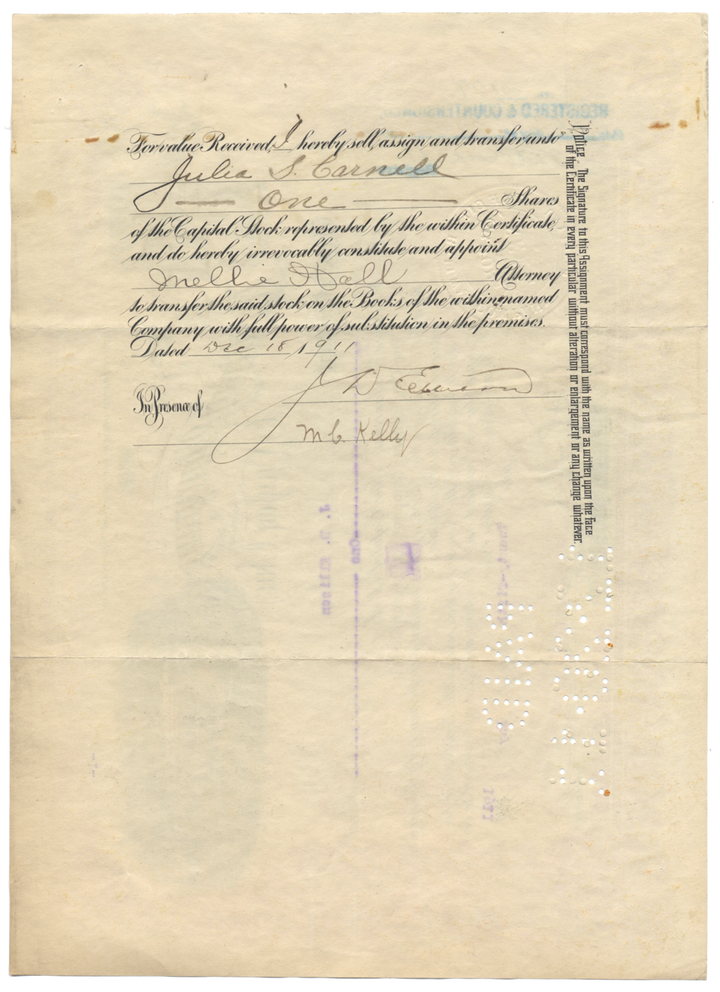 For value Received, I hereby sell, assign and transfer unto
Julia S. Carnell
— One — Shares
of the Capital Stock represented by the within Certificate,
and do hereby irrevocably constitute and appoint
Nellie Hall Attorney
to transfer the said stock on the Books of the within named
Company with full power of substitution in the premises.
Dated Dec 18 1911
J D
In Presence of
M C Kelley
Notice. The Signature to this Assignment must correspond with the name as written upon the face
of the Certificate in every particular without alteration or enlargement or any change whatever.
REGISTERED & COUNTERSIGNED
One
1911